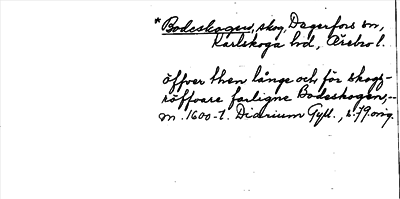 * Bodeskogen, skog, Degerfors sn,
Karlskoga hd, Örebro l.
öffver then långe och för skogz-
röffvare farligne Bodeskogen,--
m. 1600-t. Diarium Gyll., s. 79. orig.